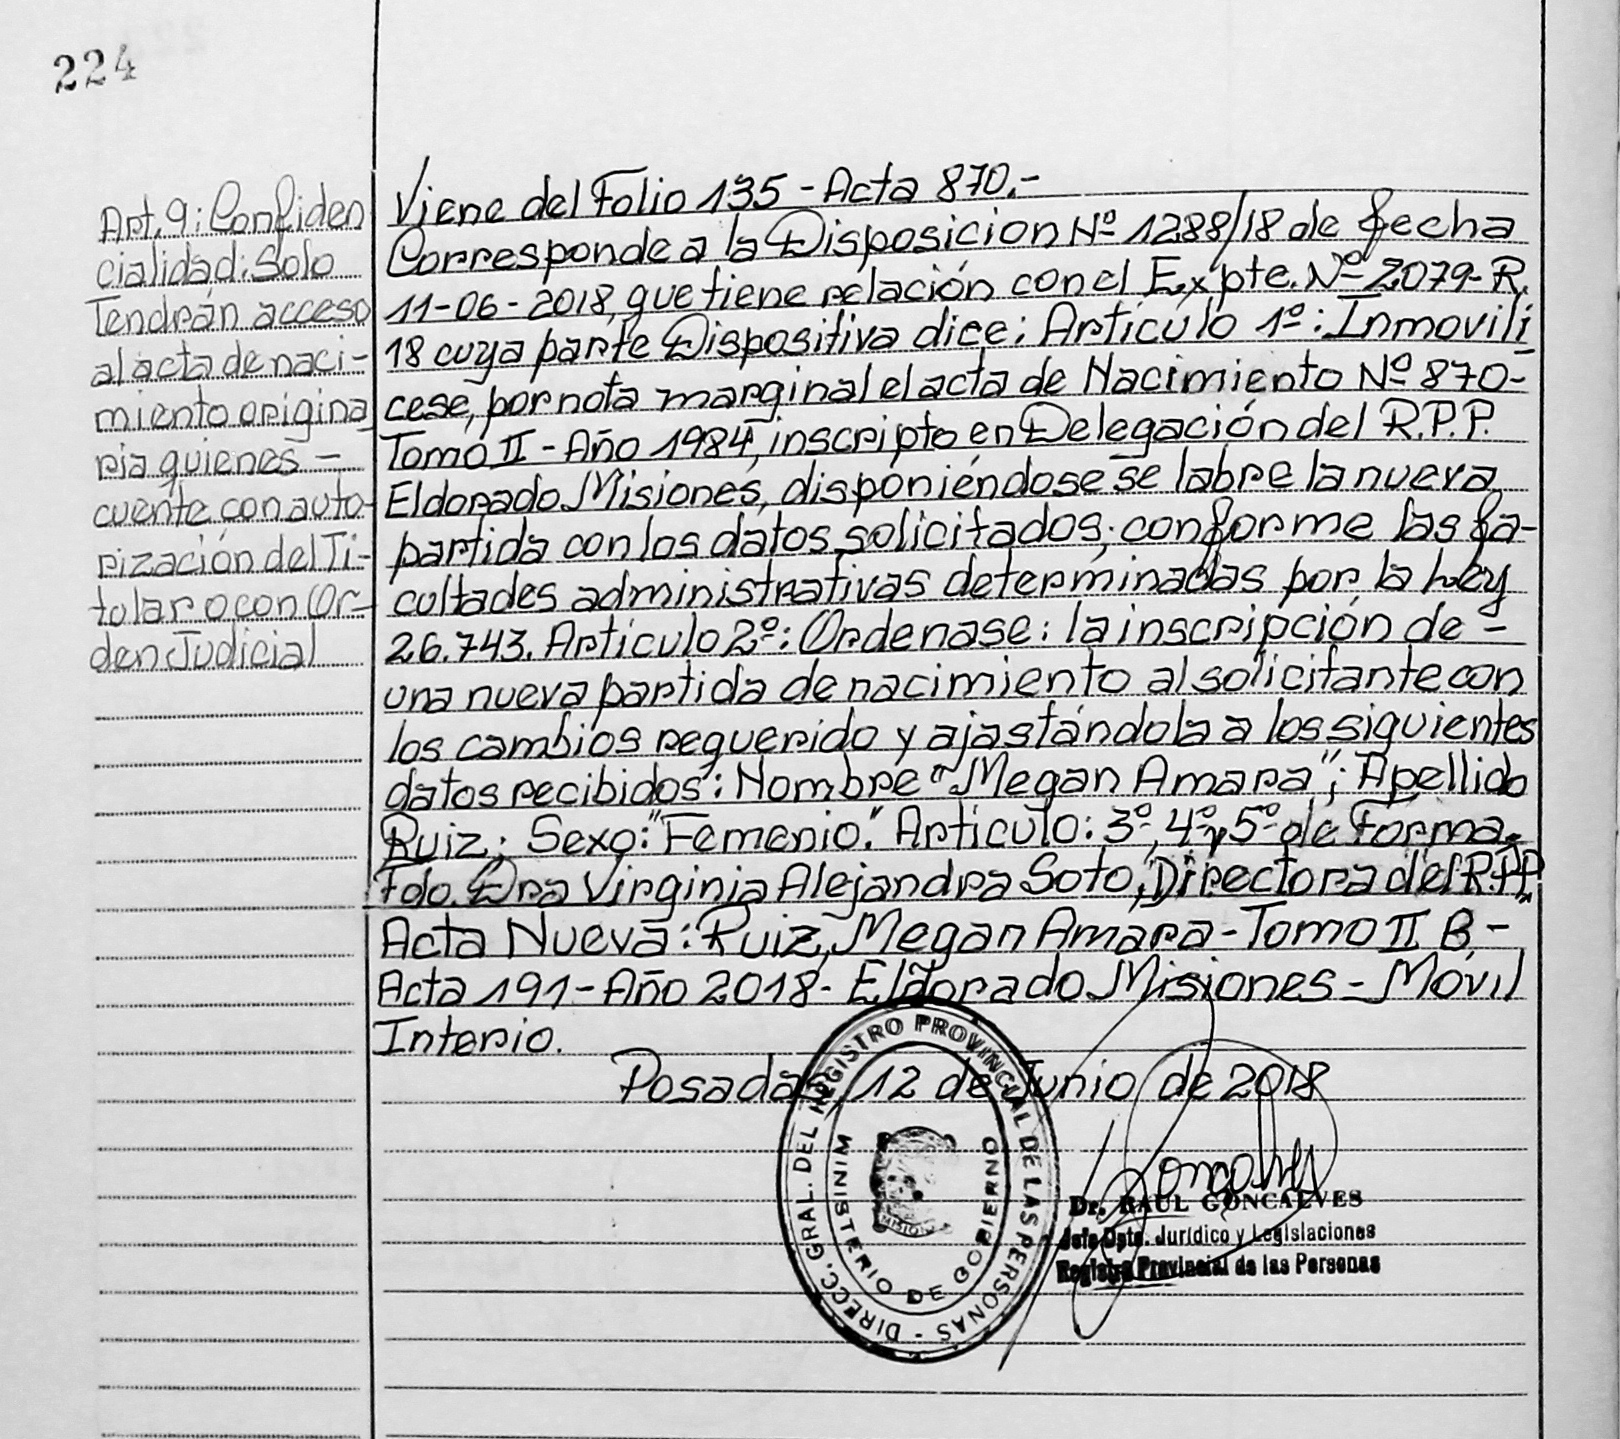 224
Art. 9: Confiden
cialidad: Solo
Tendrán acceso
al acta de naci-
miento origina
ria quienes -
cuente con auto-
rización del Ti-
tular o con Or-
den Judicial
Viene del Folio 135 - Acta 870.-
Corresponde a la Disposicion Nº 1288/18 de fecha
11-06-2018, que tiene relación con el Expte. Nº 2079-R.
18 cuya parte Dispositiva dice: Artículo 1º: Inmovili
cese, por nota marginal el acta de Nacimiento Nº 870-
Tomo II - Año 1984, inscripto en Delegación del R.P.P.
Eldorado Misiones, disponiéndose se labre la nueva
partida con los datos solicitados; conforme las fa-
cultades administrativas determinadas por la Ley
26.743. Artículo 2º: Ordenase: la inscripción de -
una nueva partida de nacimiento al solicitante con
los cambios requerido y ajastándola a los siguientes
datos recibidos: Nombre "Megan Amara"; Apellido
Ruiz; Sexo: "Femenio". Artículo: 3º, 4º y 5º de Forma.
Fdo. Dra Virginia Alejandra Soto, Directora del R.P.P.
Acta Nueva: Ruiz, Megan Amara - Tomo II B -
Acta 191 - Año 2018 - Eldorado Misiones - Móvil
Interio.
Posadas, 12 de Junio de 2018
DIRECC. GRAL. DEL REGISTRO PROVINCIAL DE LAS PERSONAS -
MINISTERIO DE GOBIERNO
MISIONES
Goncalves
Dr. RAUL GONCALVES
Jefe Dpto. Jurídico y Legislaciones
Registro Provincial de las Personas